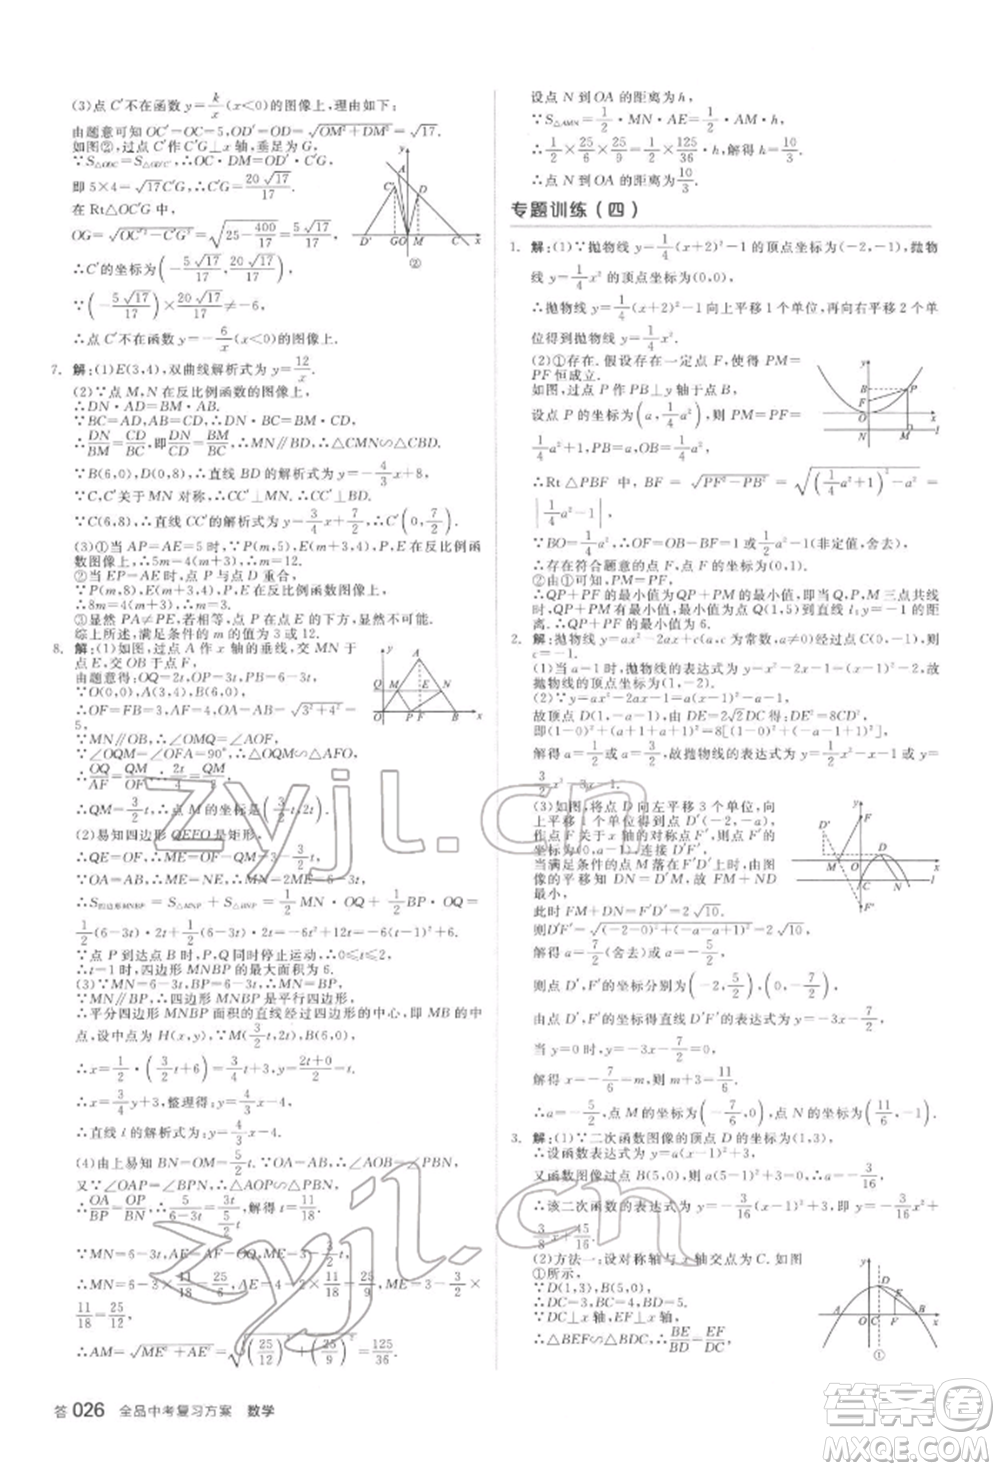 (3)点 C′不在函数 y=k/x(x<0)的图像上,理由如下:
由题意可知 OC′=OC=5,OD′=OD=√(OM²+DM²)=√17.
如图②,过点 C′作 C′G⊥x 轴,垂足为 G,
∵S△ODC=S△OC′D′,∴OC·DM=OD′·C′G,
即 5×4=√17C′G,∴C′G=20√17/17.
在 Rt△OC′G 中,
∴C′的坐标为(-5√17/17, 20√17/17).
∵(-5√17/17)×20√17/17≠-6,
∴点 C′不在函数 y=-6/x(x<0)的图像上.
7. 解:(1)E(3,4),双曲线解析式为 y=12/x.
(2)∵点 M,N 在反比例函数的图像上,
∴DN·AD=BM·AB.
∵BC=AD,AB=CD,∴DN·BC=BM·CD,
∴DN/BM=CD/BC,即DN/CD=BM/BC,∴MN∥BD,∴△CMN∽△CBD.
∵B(6,0),D(0,8),∴直线 BD 的解析式为 y=-4/3x+8,
∵C,C′关于 MN 对称,∴CC′⊥MN,∴CC′⊥BD.
∵C(6,8),∴直线 CC′的解析式为 y=3/4x+7/2,∴C′(0,7/2).
(3)①当 AP=AE=5时,∵P(m,5),E(m+3,4),P,E 在反比例函
数图像上,∴5m=4(m+3),∴m=12.
②当 EP=AE时,点 P 与点 D 重合,
∵P(m,8),E(m+3,4),P,E 在反比例函数图像上,
∴8m=4(m+3),∴m=3.
③显然 PA≠PE,若相等,则点 P 在点 E 的下方,矛盾.
综上所述,满足条件的 m 的值为 3 或 12.
8. 解:(1)如图,过点 A 作 x 轴的垂线,交 MN 于
点 E,交 OB 于点 F.
由题意得:OQ=2t,OP=3t,PB=6-3t.
∵O(0,0),A(3,4),B(6,0),
∴OF=FB=3,AF=4,OA=AB=√(3²+4²)=
5.
∵MN∥OB,∴∠OQM=∠OFA,∠OMQ=∠AOF.
∵∠OQM=∠AFO=90°,∴△OQM∽△AFO.
∴OQ/AF=QM/OF,∴2t/4=QM/3,
∴QM=3/2t,∴点 M 的坐标是(3/2t,2t).
(2)易知四边形 QEFO 是矩形.
∴QE=OF,∴ME=OF-QM=3-3/2t.
∵OA=AB,∴ME=NE,∴MN=2ME=6-3t,
∴S四边形MNBP=S△MNP+S△BNP=1/2MN·OQ+1/2BP·OQ=
1/2(6-3t)·2t+1/2(6-3t)·2t=-6t²+12t=-6(t-1)²+6.
∵点 P 到达点 B 时,P,Q 同时停止,∴0≤t≤2.
∴t=1 时,四边形 MNBP 的最大面积为 6.
(3)∵MN=6-3t,BP=6-3t,∴MN=BP.
∵MN∥BP,∴四边形 MNBP 是平行四边形.
∴平分四边形 MNBP 面积的直线经过四边形的中心,即 MB 的中
点,设中点为 H(x,y),∵M(3/2t,2t),B(6,0),
∴x=1/2·(3/2t+6)=3/4t+3,y=2t+0/2=t.
∴x=3/4y+3,整理得:y=4/3x-4.
∴直线 l 的解析式为:y=4/3x-4.
(4)由上易知 BN=OM=5/2t,BP=6-3t,
又∵OA=AB,∴∠AOP=∠PBN,
∵∠OAP=∠BPN,∴△AOP∽△PBN,
∴OA/BP=OP/BN,∴5/(6-3t)=3t/(5/2t),解得:t=11/18.
∵MN=6-3t,AE=AF-OQ,ME=3-3/2t,
∴MN=6-3×11/18=25/6,AE=4-2×11/18=25/9,ME=3-3/2×
11/18=25/12,
∴AM=√(ME²+AE²)=√((25/12)²+(25/9)²)=125/36.
设点 N 到OA 的距离为 h,
∵S△AMN=1/2·MN·AE=1/2·AM·h,
∴1/2×25/6×25/9=1/2×125/36·h,解得 h=10/3.
∴点 N 到 OA 的距离为10/3.
专题训练(四)
1. 解:(1)∵抛物线 y=1/4(x+2)²-1 的顶点坐标为(-2,-1),抛物
线 y=1/4x² 的顶点坐标为(0,0),
∴抛物线 y=1/4(x+2)²-1 向上平移 1 个单位,再向右平移 2 个单
位得到抛物线 y=1/4x².
(2)①存在. 假设存在一定点 F,使 PM=
PF 恒成立.
如图,过点 P 作 PB⊥y 轴于点 B,
设点 P 的坐标为(a,1/4a²),则 PM=PF=
1/4a²+1,∵PB=a,
∴Rt△PBF 中, BF=√(PF²-PB²)=√((1/4a²+1)²-a²)=
|1/4a²-1|.
∵BO=1/4a²,∴OF=OB-BF=1或OF=1/2a²-1(非定值,舍去),
∴存在符合题意的点 F,坐标为(0,1).
②∵PM=PF,
∴QP+PF 的最小值为 QP+PM 的最小值,当点 Q,P,M 三点共线时
QP+PM 有最小值,最小值为点 Q(1,5)到直线 l:y=-1 的距
离.∴QP+PF 的最小值为 6.
2. 解:抛物线 y=ax²-2ax+c(a,c为常数,a≠0)经过点 C(0,-1),则
c=-1.
(1)当 a=1时,抛物线的表达式为 y=x²-2x-1=(x-1)²-2,故
抛物线的顶点坐标为(1,-2).
(2)∵y=ax²-2ax-1=a(x-1)²-a-1,
故顶点 D(1,-a-1),由 DE=2√2DC 得 DE²=8CD²,
即(1-0)²+(-a-1-a)²=8[(1-0)²+(-a-1+1)²],
解得 a=1/2 或 a=3/2,故抛物线的表达式为 y=1/2x²-x-1 或 y=
3/2x²-3x-1.
(3)如图,将点 D 向左平移 3 个单位,向
上平移 1 个单位得到点 D′(-2,-a),
作点 F 关于 x 轴的对称点 F′,则点 F′的
坐标为(0,a-1),连接 D′F′.
当满足条件的点 M 落在 F′D′上时,由图
像的平移知 DN=D′M,故此时 FM+ND
最小,
此时 FM+DN=F′D′=2√10.
则D′F′=√((-2-0)²+(-a-a+1)²)=2√10,
则点 D′,F′的坐标分别为(-2,5/2),(0,-7/2),
由点 D′,F′的坐标得直线 D′F′的表达式为 y=-3x-7/2.
当 y=0时,y=-3x-7/2=0,
解得 x=-7/6=m,则 m+3=11/6.
∴a=-5/2,点 M 的坐标为(-7/6,0),点 N 的坐标为(11/6,-1).
3. 解:(1)∵二次函数图像的顶点 D 的坐标为(1,3),
∴设函数表达式为 y=a(x-1)²+3.
又函数图像过点 B(5,0),∴a(5-1)²+3=0,解得 a=-3/16,
∴该二次函数的表达式为 y=-3/16(x-1)²+3,即 y=-3/16x²+
3/8x+45/16.
(2)方法一:设对称轴与 x 轴交点为 C. 如图
①所示,
∵D(1,3),B(5,0),
∴DC=3,BC=4,∴BD=5.
∵DC⊥x 轴,EF⊥x 轴,
∴△BEF∽△BDC,∴BE/BD=EF/DC,
①
②
答 026 全品中考复习方案 数学
zyjl.cn
zyjl.cn
答案圈
MXQE.COM